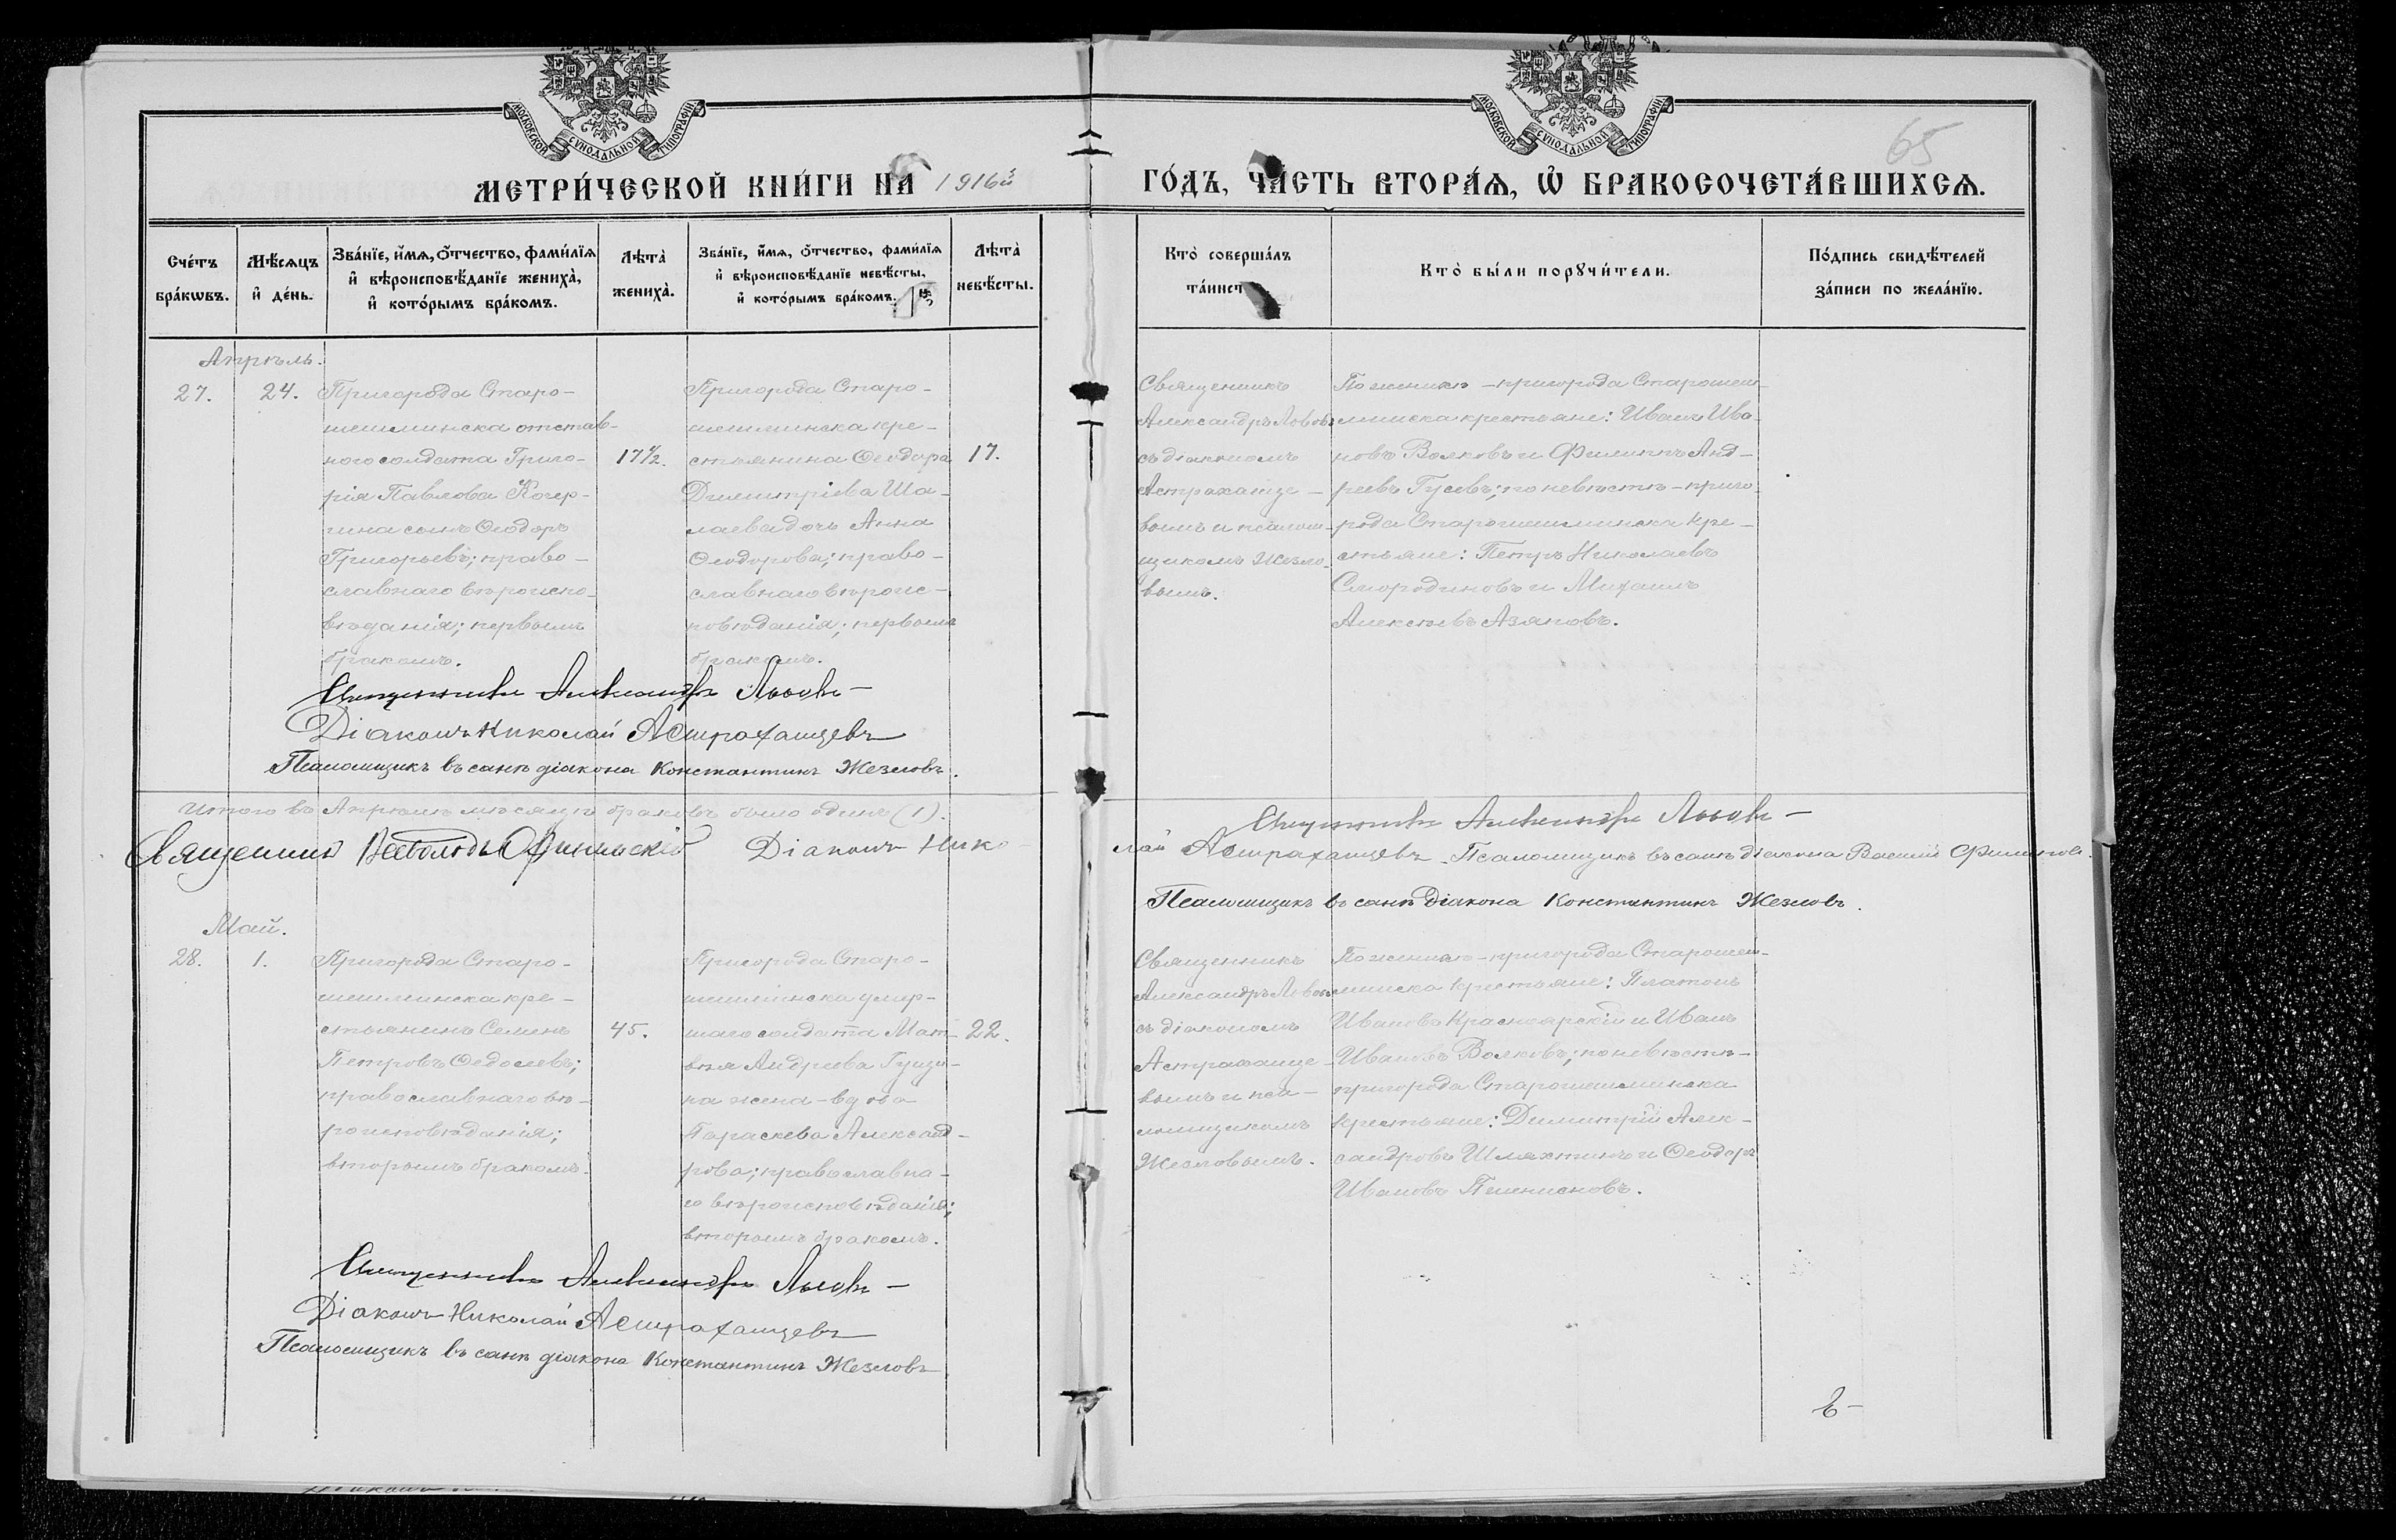 МОСКОВСКОЙ СѴНОДАЛЬНОЙ ТИПОГРАФІИ
МОСКОВСКОЙ СѴНОДАЛЬНОЙ ТИПОГРАФІИ
65
МЕТРИ́ЧЕСКОЙ КНИ́ГИ НА 1916й
ГО́ДЪ, ЧА́СТЬ ВТОРА́Ѧ, Ѽ БРАКОСОЧЕТА́ВШИХСѦ.
Сче́тъ
бра́кѡвъ.
Мѣ́сѧцъ
и҆ де́нь.
Зва́нїе, и҆́мѧ, ѻ҆́тчество, фами́лїѧ
и҆ вѣроисповѣ́данїе жениха̀,
и҆ кото́рымъ бра́комъ.
Лѣта̀
жениха̀.
Зва́нїе, и҆́мѧ, ѻ҆́тчество, фами́лїѧ
и҆ вѣроисповѣ́данїе невѣ́сты,
и҆ кото́рымъ бра́комъ.
Лѣта̀
невѣ́сты.
Кто̀ соверша́лъ
та́инст
Кто̀ бы́ли порꙋчи́тели.
По́дпись свидѣ́телей
за́писи по жела́нїю.
Апрѣль.
27.
24.
Пригорода Старо-
шешминска отстав-
ного солдата Григо-
рія Павлова Кочер-
гина сынъ Ѳеодоръ
Григорьевъ; право-
славнаго вѣроиспо-
вѣданія; первымъ
бракомъ.
17½.
Пригорода Старо-
шешминска кре-
стьянина Ѳеодора
Димитріева Ша-
лаева дочь Анна
Ѳеодорова; право-
славнаго вѣроис-
повѣданія; первымъ
бракомъ.
17.
Священникъ
Александръ Львовъ
съ діакономъ
Астраханце-
вымъ и псалом-
щикомъ Жезло-
вымъ.
По женихѣ - пригорода Старошеш-
минска крестьяне: Иванъ Ива-
новъ Волковъ и Филиппъ Анд-
реевъ Гусевъ; по невѣстѣ - приго-
рода Старошешминска кре-
стьяне: Петръ Николаевъ
Смородиновъ и Михаилъ
Алексѣевъ Азяповъ.
Священникъ Александръ Львовъ-
Діаконъ Николай Астраханцевъ
Псаломщикъ въ санѣ діакона Константинъ Жезловъ.
Итого въ Апрѣлѣ мѣсяцѣ браковъ было одинъ (1).
Священникъ Александръ Львовъ-
Священникъ Всеволодъ Діаконъ Нико-
лай Астраханцевъ. Псаломщикъ въ санѣ діакона Василій Филиповъ.
Псаломщикъ въ санѣ діакона Константинъ Жезловъ.
Май.
28.
1.
Пригорода Старо-
шешминска кре-
стьянинъ Семенъ
Петровъ Ѳедосеевъ;
православнаго вѣ-
роисповѣданія;
вторымъ бракомъ.
45.
Пригорода Старо-
шешминска умер-
шаго солдата Мат-
вѣя Андреева Гущи-
на жена - вдова
Параскева Александ-
рова; православна-
го вѣроисповѣданія;
вторымъ бракомъ.
22.
Священникъ
Александръ Львовъ
съ діакономъ
Астраханце-
вымъ и пса-
ломщикомъ
Жезловымъ.
По женихѣ - пригорода Старошеш-
минска крестьяне: Платонъ
Ивановъ Красноярскій и Иванъ
Ивановъ Волковъ; по невѣстѣ -
пригорода Старошешминска
крестьяне: Димитрій Алек-
сандровъ Шляхтинъ и Ѳеодоръ
Ивановъ
Священникъ Александръ Львовъ-
Діаконъ Николай Астраханцевъ
Псаломщикъ въ санѣ діакона Константинъ Жезловъ